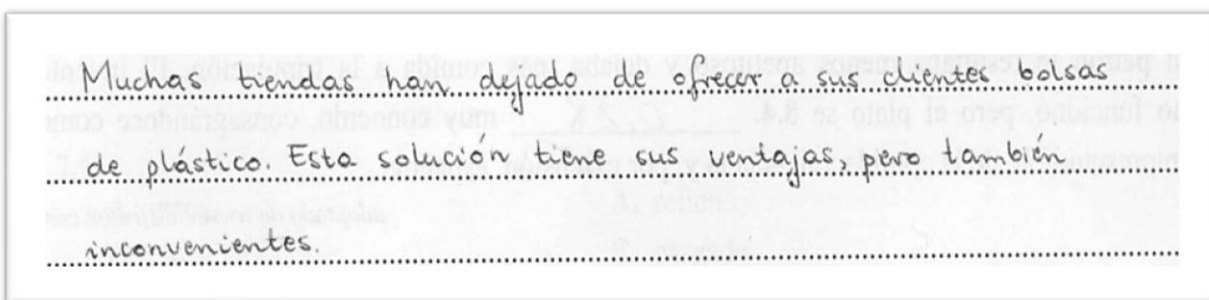 Muchas tiendas han dejado de ofrecer a sus clientes bolsas
de plástico. Esta solución tiene sus ventajas, pero también
inconvenientes.